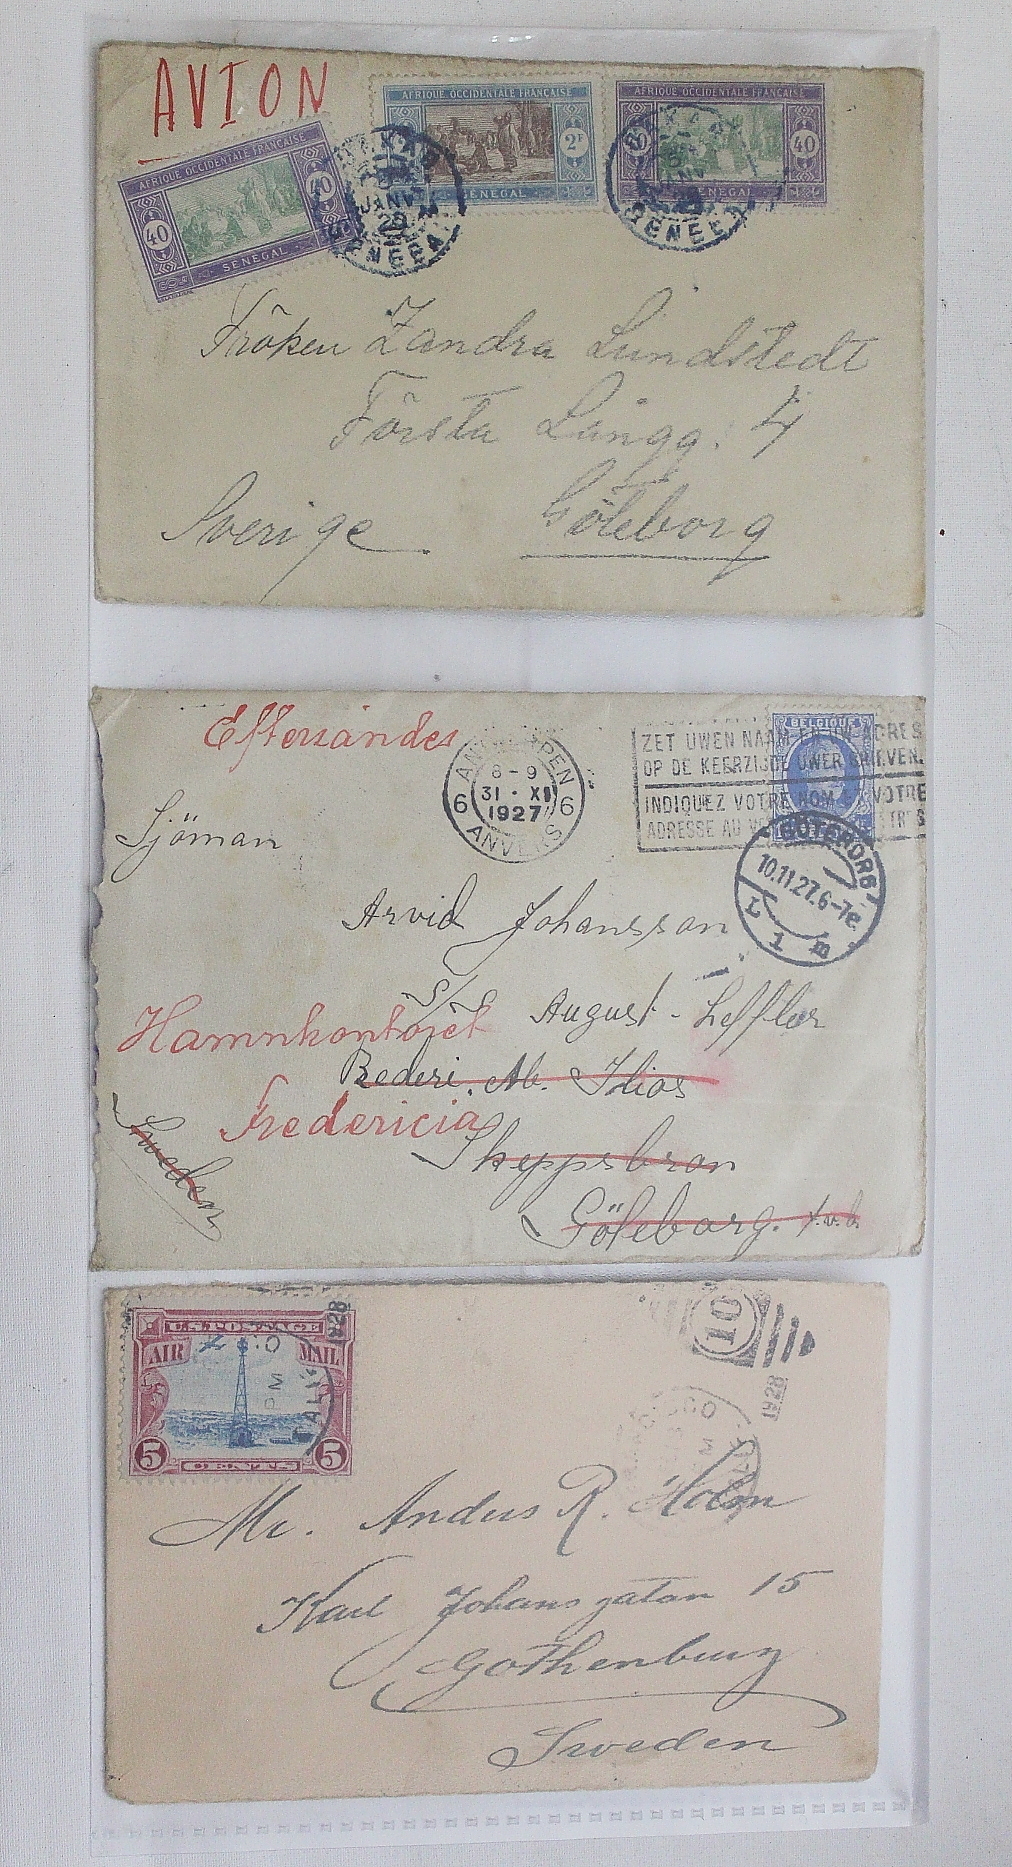 AVION
AFRIQUE OCCIDENTALE FRANÇAISE
40 40
SENEGAL
AFRIQUE OCCIDENTALE FRANÇAISE
2F
SENEGAL
AFRIQUE OCCIDENTALE FRANÇAISE
40
SENEGAL
DAKAR
JANV
29
Fröken Zandra Lundstedt
Första Långg. 4
Göteborg
Sverige
Eftersändes
ANTWERPEN
8-9
31 · XI
1927
6 6
ANVERS
BELGIQUE
ZET UWEN NAAM EN UW ADRES
OP DE KEERZIJDE UWER BRIEVEN.
INDIQUEZ VOTRE NOM ET VOTRE
ADRESSE AU
GÖTEBORG
10.11.27.6-7e.
L 1 m
Sjöman
Arvid Johansson
S/S August Leffler
Hamnkontoret
Rederi. Ab. Ilios
Fredericia
Skeppsbron
Sweden
Göteborg.
U.S. POSTAGE
AIR MAIL
5 5
CENTS
1928
PM
CAL
10
1928
Mr. Andus R. Holm
Karl Johansgatan 15
Gothenburg
Sweden